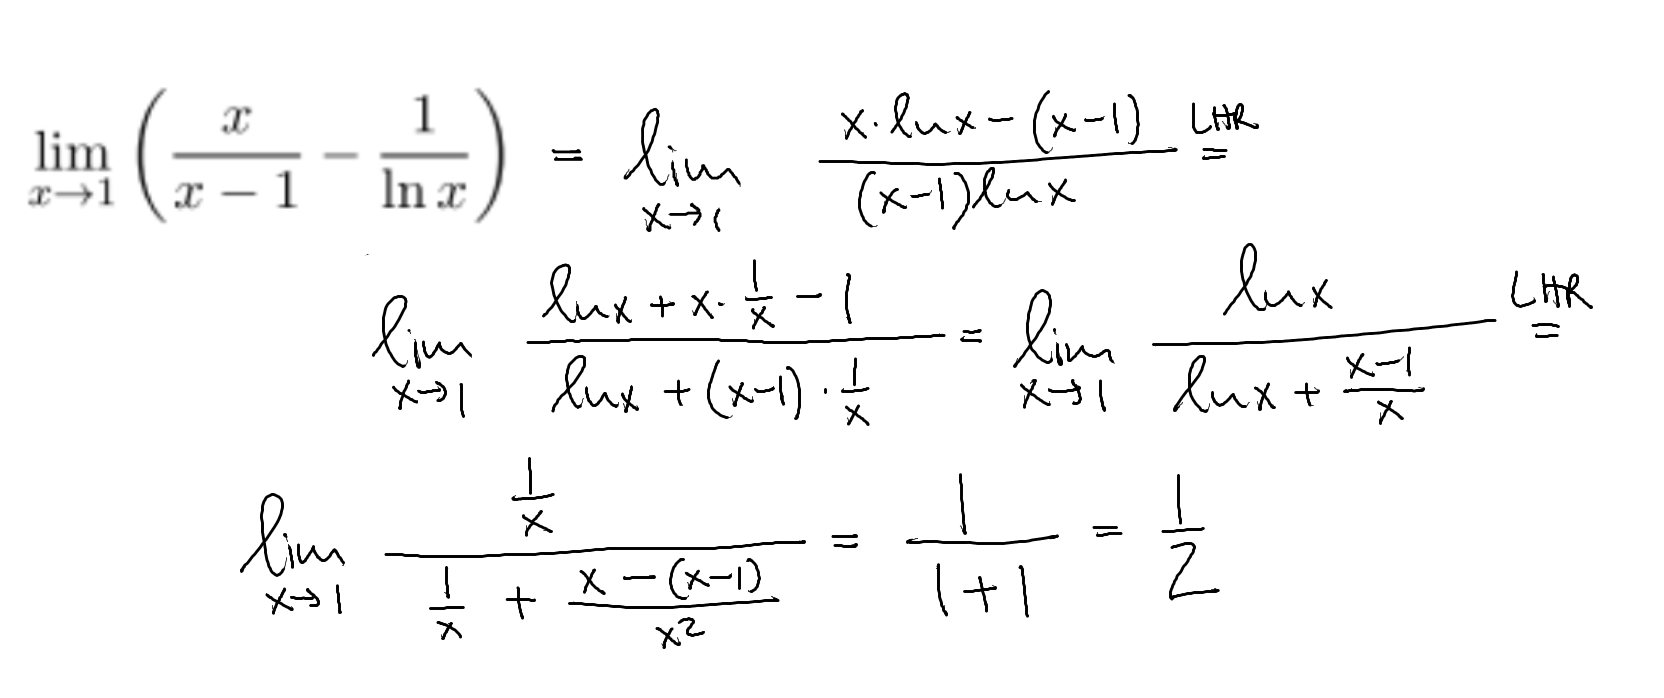 lim x→1 ( x/(x − 1) − 1/ln x ) = lim x→1 (x·lnx − (x−1))/((x−1)lnx) LHR =
lim x→1 (lnx + x·1/x − 1)/(lnx + (x−1)·1/x) = lim x→1 lnx/(lnx + (x−1)/x) LHR =
lim x→1 (1/x)/(1/x + (x − (x−1))/x²) = 1/(1+1) = 1/2